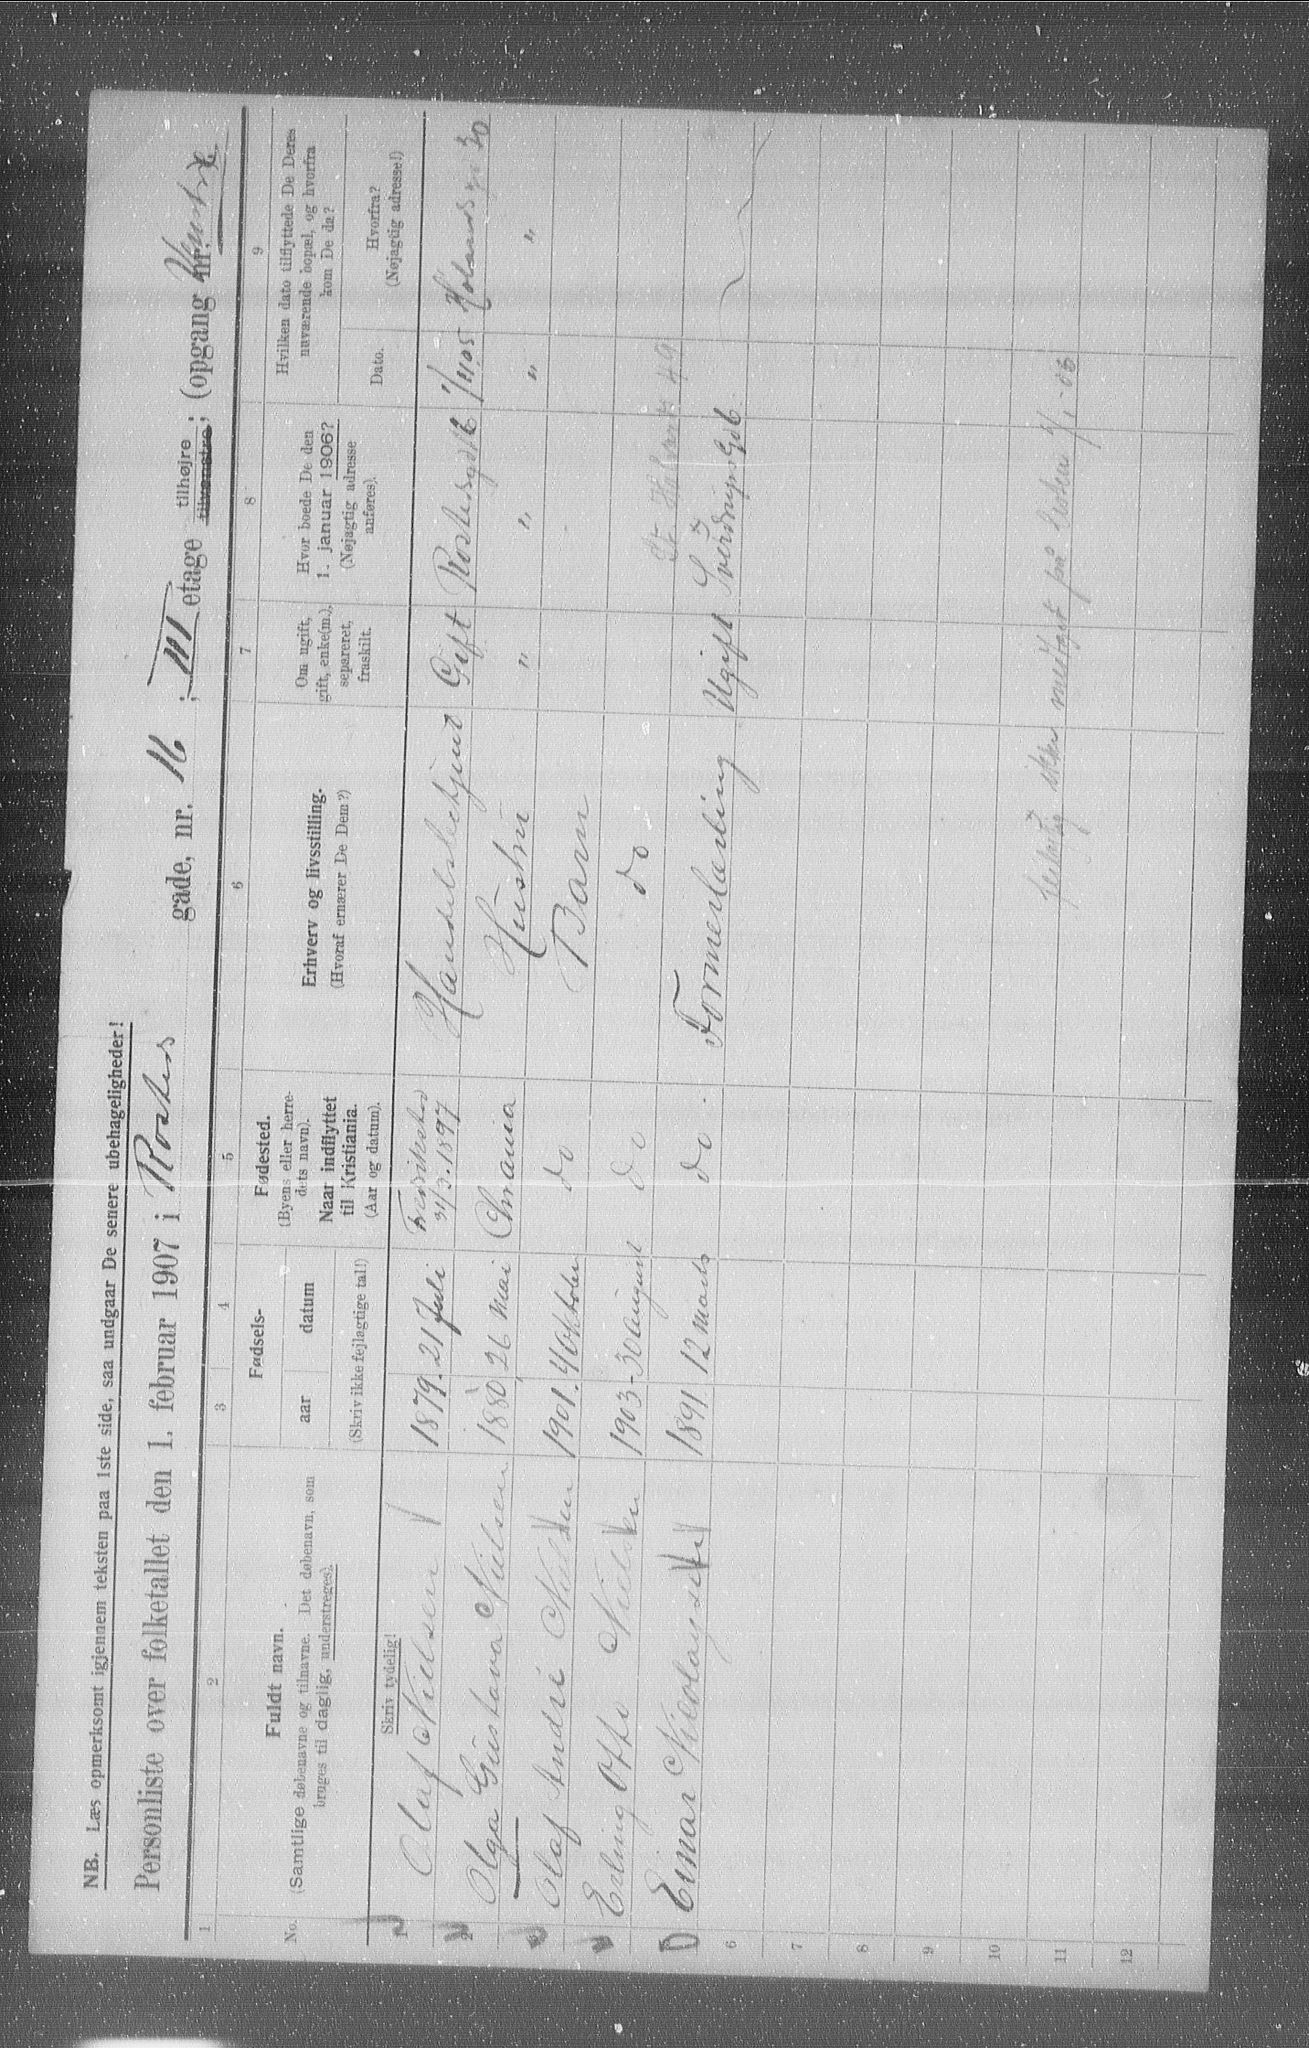 NB. Læs opmerksomt igjennem teksten paa 1ste side, saa undgaar De senere ubehageligheder!
Personliste over folketallet den 1. februar 1907 i Rosteds gade, nr. 16 ; III etage tilhøjre tilvenstre; (opgang nr.
1 2 3 4 5 6 7 8 9
No.
Fuldt navn.
(Samtlige døbenavne og tilnavne. Det døbenavn, som
bruges til daglig, understreges).
Skriv tydelig!
Fødsels-
aar datum
(Skriv ikke fejlagtige tal!)
Fødested.
(Byens eller herre-
dets navn).
Naar indflyttet
til Kristiania.
(Aar og datum).
Erhverv og livsstilling.
(Hvoraf ernærer De Dem?)
Om ugift,
gift, enke(m.),
separeret,
fraskilt.
Hvor boede De den
1. januar 1906?
(Nøjagtig adresse
anføres).
Hvilken dato tilflyttede De Deres
nuværende bopæl, og hvorfra
kom De da?
Dato.
Hvorfra?
(Nøjagtig adresse!)
1 Olaf Nielsen 1879. 21 Juli 31/3.1897 Gift Rostedsgd 16 1/11.05
2 Olga Gustava Nielsen 1880, 26 Mai Chrania Hustru " " " "
Olaf Andre Nielsen 1901. 4 Oktober do Barn
Erling Otto Nielsen 1903 - 30 August do do
St. Halvards 49
Einar Nicolaysen 1891 12 Marts do. Formerlærling Ugift
6
7
8
9
10
11 ikke medtaget paa listen 1/1 - 06
12